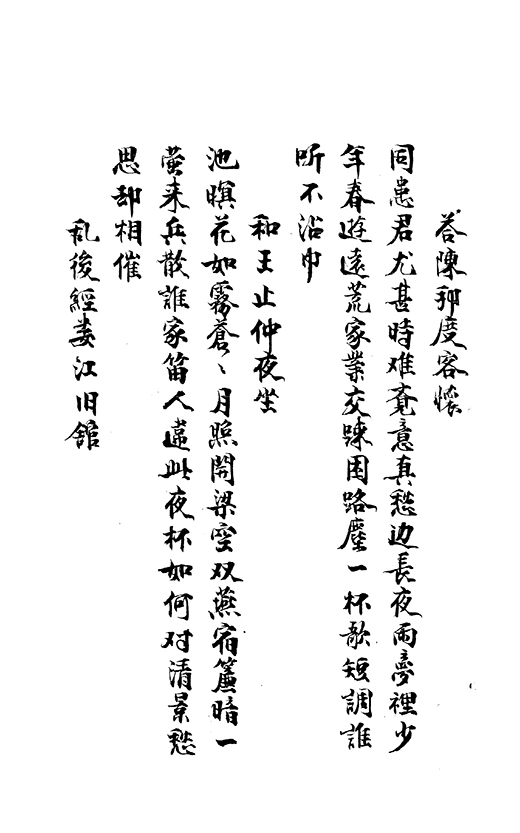 答陳卿度客懷
同患君尤甚時难覔意真愁边長夜雨夢裡少
年春遊遠荒家業交踈困路塵一杯歌短調誰
听不沾巾
和王止仲夜坐
池暝花如霧蒼〻月照開梁空双燕宿簾暗一
螢来兵散誰家笛人遠此夜杯如何对清景愁
思却相催
乱後經婁江旧舘